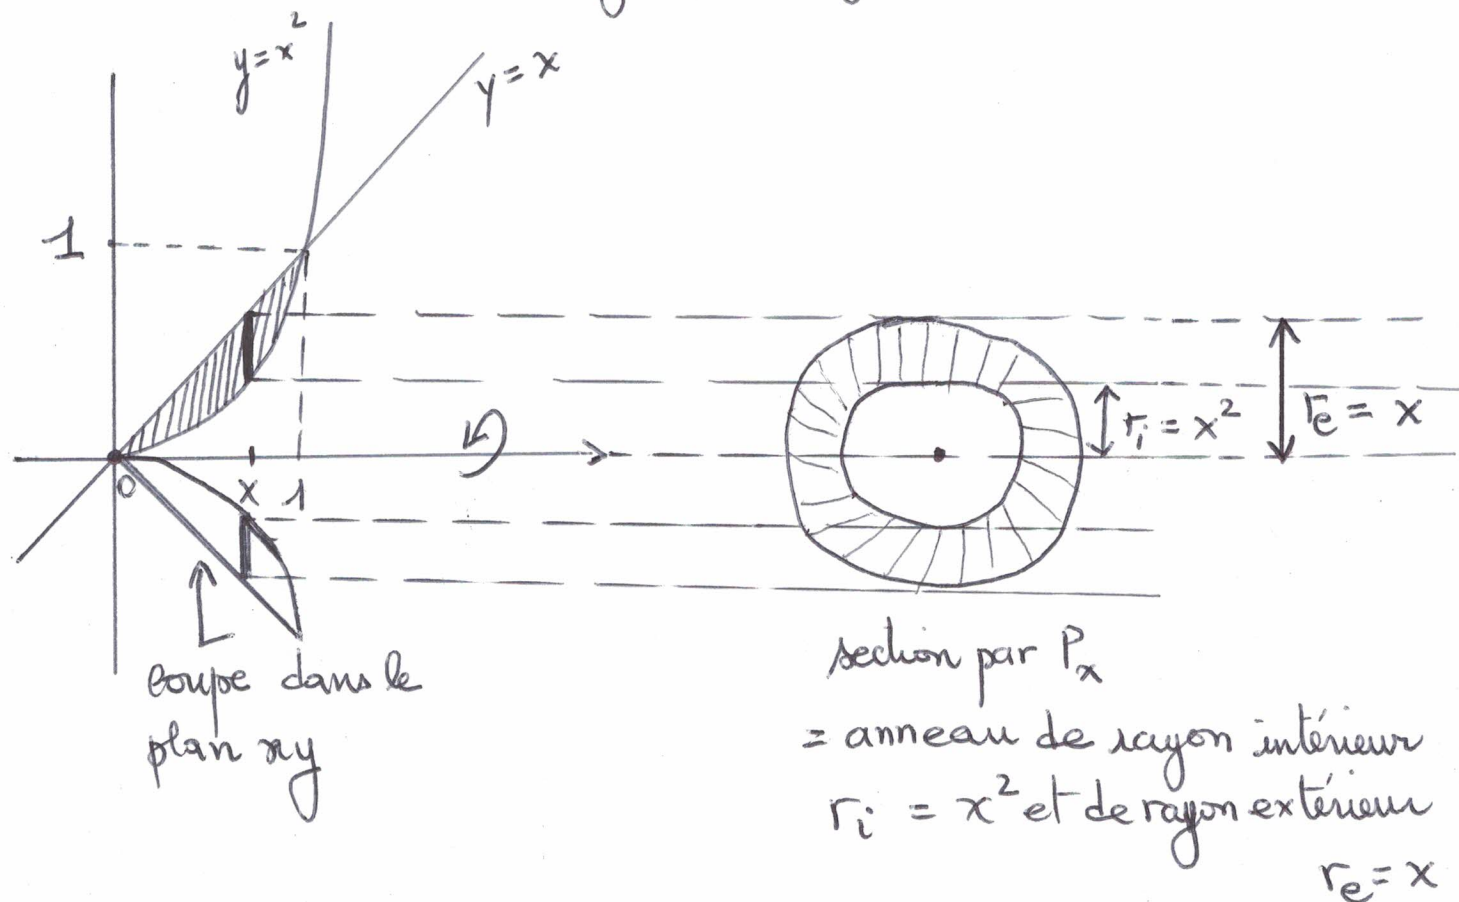 y = x²
y = x
1
rᵢ = x²
rₑ = x
0
x
1
coupe dans le
plan xy
section par Pₓ
= anneau de rayon intérieur
rᵢ = x² et de rayon extérieur
rₑ = x